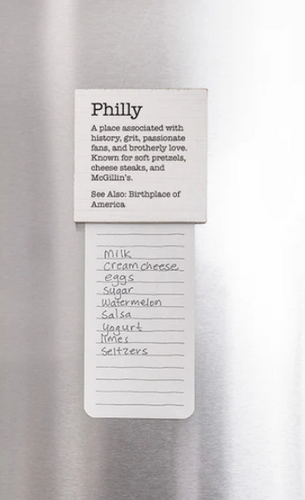 Philly
A place associated with
history, grit, passionate
fans, and brotherly love.
Known for soft pretzels,
cheese steaks, and
McGillin's.
See Also: Birthplace of
America
Milk
cream cheese
eggs
Sugar
Watermelon
Salsa
Yogurt
limes
Seltzers